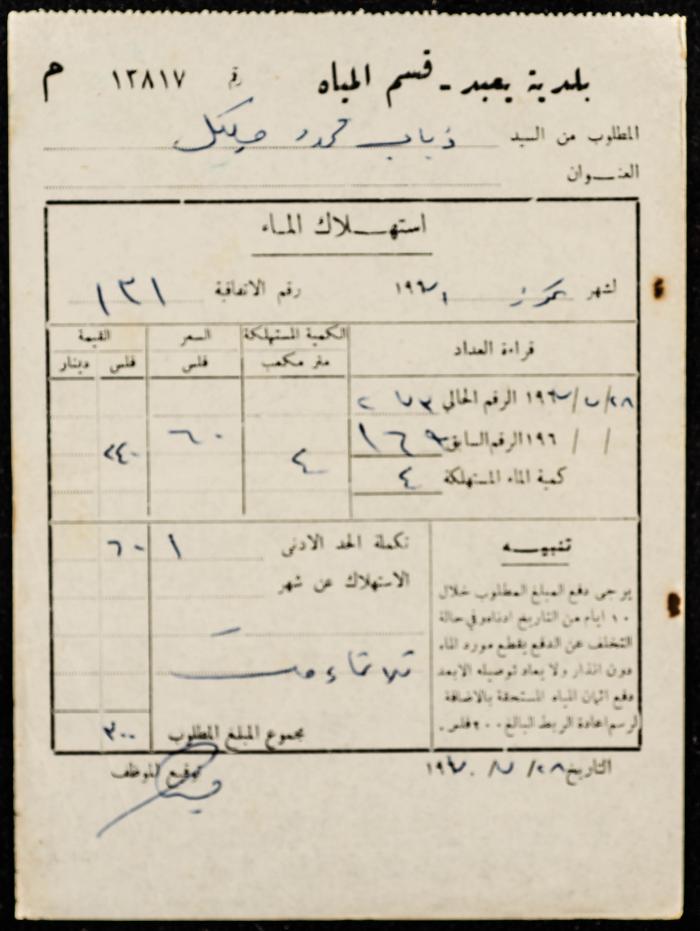 بلدية يعبد - قسم المياه رقم ١٣٨١٧ م
المطلوب من السيد ذياب محمود
العنـــوان
استهـــلاك المـاء
لشهر تموز ١٩٦ رقم الاتفاقية ١٣١
قراءة العداد الكمية المستهلكة السعر القيمة
متر مكعب فلس فلس دينار
٢٨/٧/١٩٦ الرقم الحالي ٢٧٣
/ / ١٩٦ الرقم السابق ١٦٩ ٤ ٦٠ ٢٤٠
كمية الماء المستهلكة ٤
تنبيـــه
يرجى دفع المبلغ المطلوب خلال
١٠ ايام من التاريخ ادناه وفي حالة
التخلف عن الدفع يقطع مورد الماء
دون انذار ولا يعاد توصيله الا بعد
دفع اثمان المياه المستحقة بالاضافة
لرسم اعادة الربط البالغ ٢٠٠ فلس .
تكملة الحد الادنى ١ ٦٠
الاستهلاك عن شهر
مجموع المبلغ المطلوب ٣٠٠
التاريخ ٢٨/ ٧/ ١٩٦ توقيع الموظف